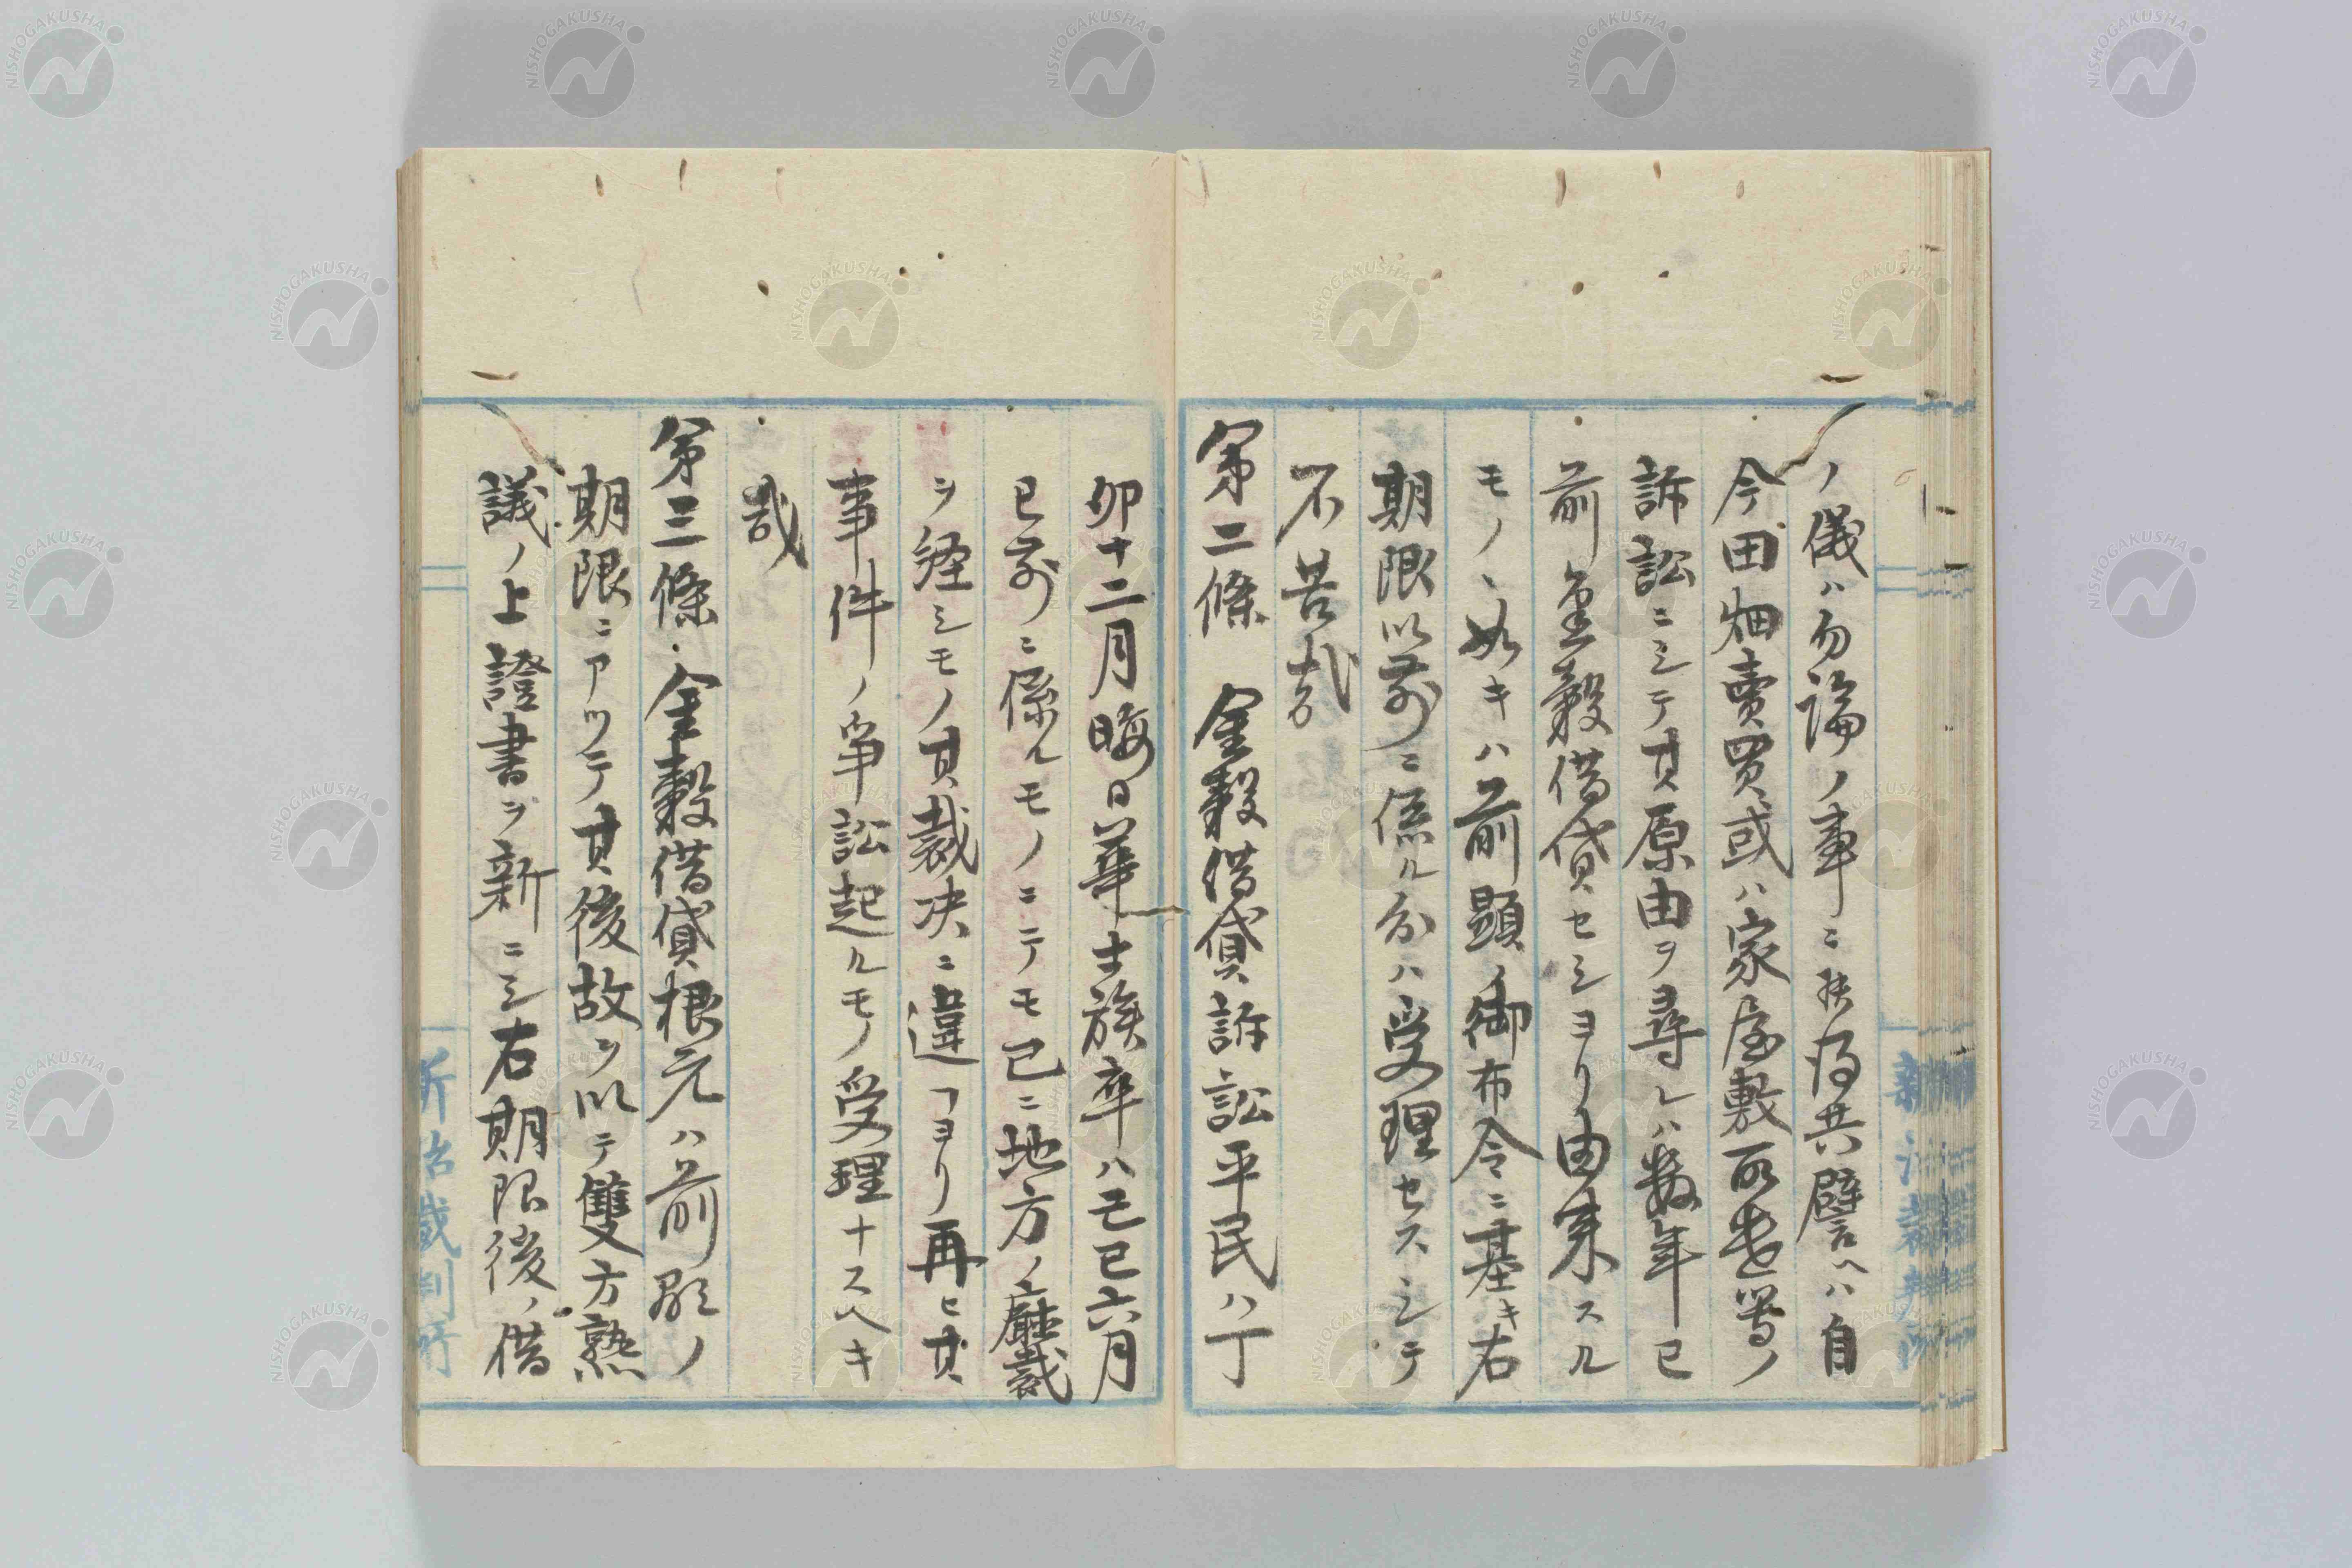 ノ儀ハ勿論ノ事ニ候得共譬ヘハ自
今田畑賣買或ハ家屋敷所書等ノ
訴訟ニシテ其原由ヲ尋レハ数年已
前金穀借貸セシヨリ由来スル
モノヽ如キハ前顕ノ御布令ニ基キ右
期限以前ニ係ル分ハ受理セスシテ
不苦哉
第二條 金穀借貸訴訟平民ハ丁
卯十二月晦日華士族卒ハ己巳六月
已前ニ係ルモノニテモ已ニ地方ノ廰裁
ヲ経シモノ其裁决ニ違フヨリ再ヒ其
事件ノ争訟起ルモノ受理ナスヘキ
哉
第三條 金穀借貸根元ハ前顕ノ
期限ニアツテ其後故ヲ以テ雙方熟
議ノ上證書ヲ新ニシ右期限後ノ借
新治裁判所
新治裁判所
NISHOGAKUSHA